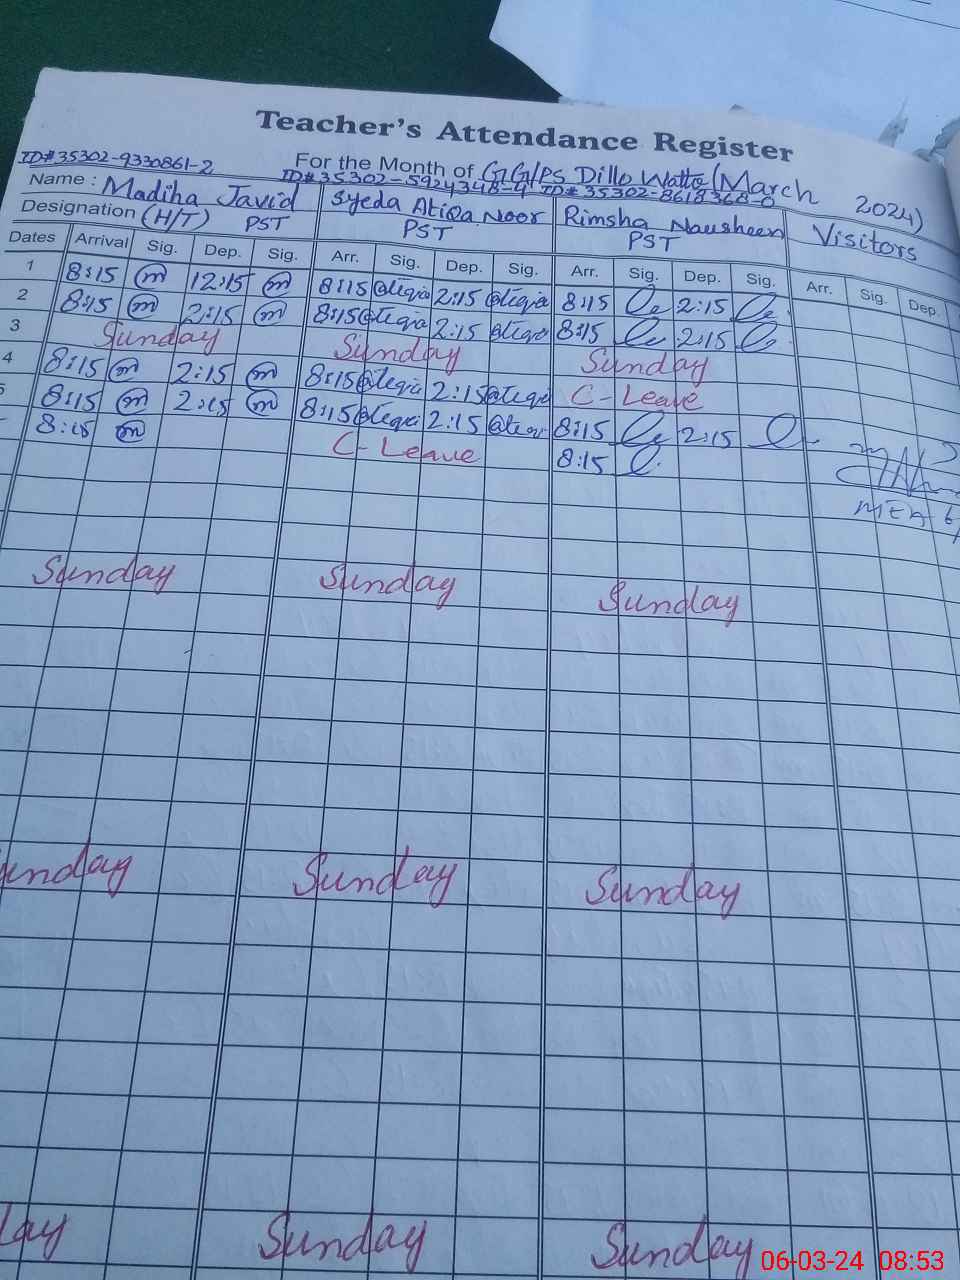 Teacher's Attendance Register
ID# 35302-9330861-2 For the Month of GGPS Dillo Watto (March 2024)
ID# 35302-5924348-4 ID# 35302-8618368-0
Name : Madiha Javid Syeda Atiqa Noor Rimsha Nausheen Visitors
Designation (H/T) PST PST PST
Dates Arrival Sig. Dep. Sig. Arr. Sig. Dep. Sig. Arr. Sig. Dep. Sig. Arr. Sig. Dep.
1 8:15 m 12:15 m 8:15 2:15 8:15 2:15
2 8:15 m 2:15 m 8:15 2:15 8:15 2:15
3 Sunday Sunday Sunday
4 8:15 m 2:15 m 8:15 2:15 C-Leave
5 8:15 m 2:15 m 8:15 2:15 8:15 2:15
8:15 m C-Leave 8:15
MEA
Sunday Sunday Sunday
unday Sunday Sunday
day Sunday Sunday
06-03-24 08:53